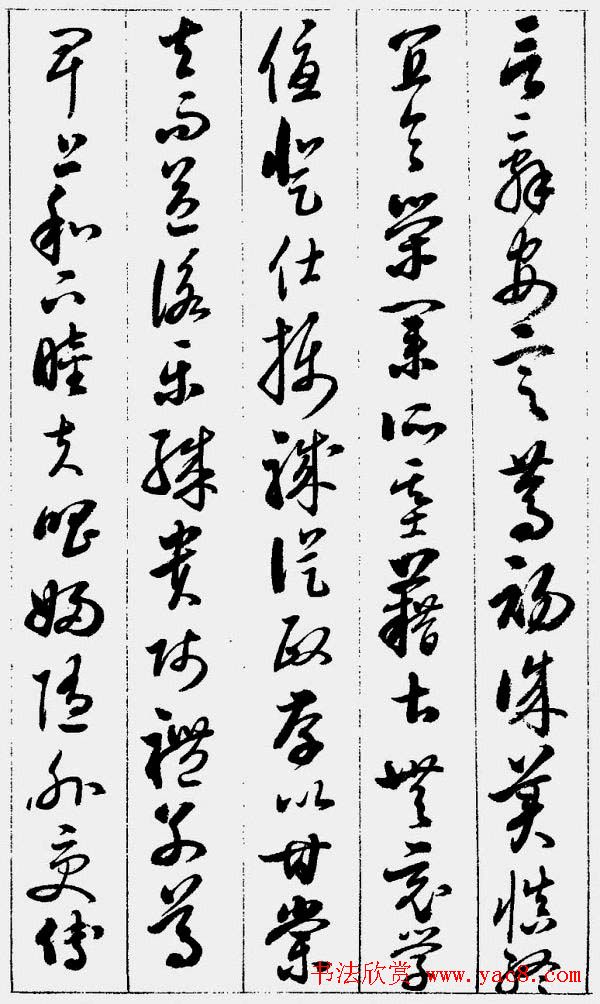 言辭安定篤初誠美慎終
宜令榮業所基籍甚無竟學
優登仕攝職從政存以甘棠
去而益詠樂殊貴賤禮別尊
卑上和下睦夫唱婦隨外受傅
书法欣赏 www.yac8.com